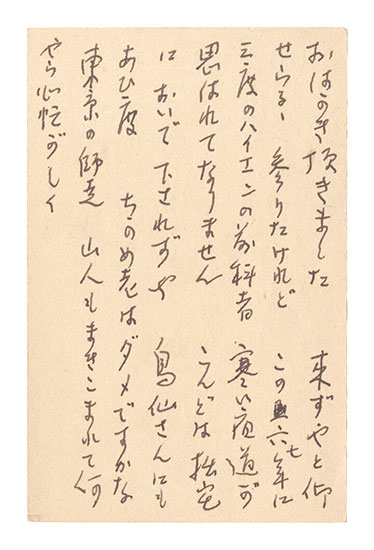 おはがき頂きました　来ずやと仰
せらるゝ　参りたけれど　この六七年に
三度のハイエンの前科者　寒い夜道が
思はれてなりません　こんどは拙宅
に　おいで下されずや　鳥仙さんにも
あひ度　ちのめ老はダメですかな
東京の師走　山人もまきこまれて何
やら心忙がしく